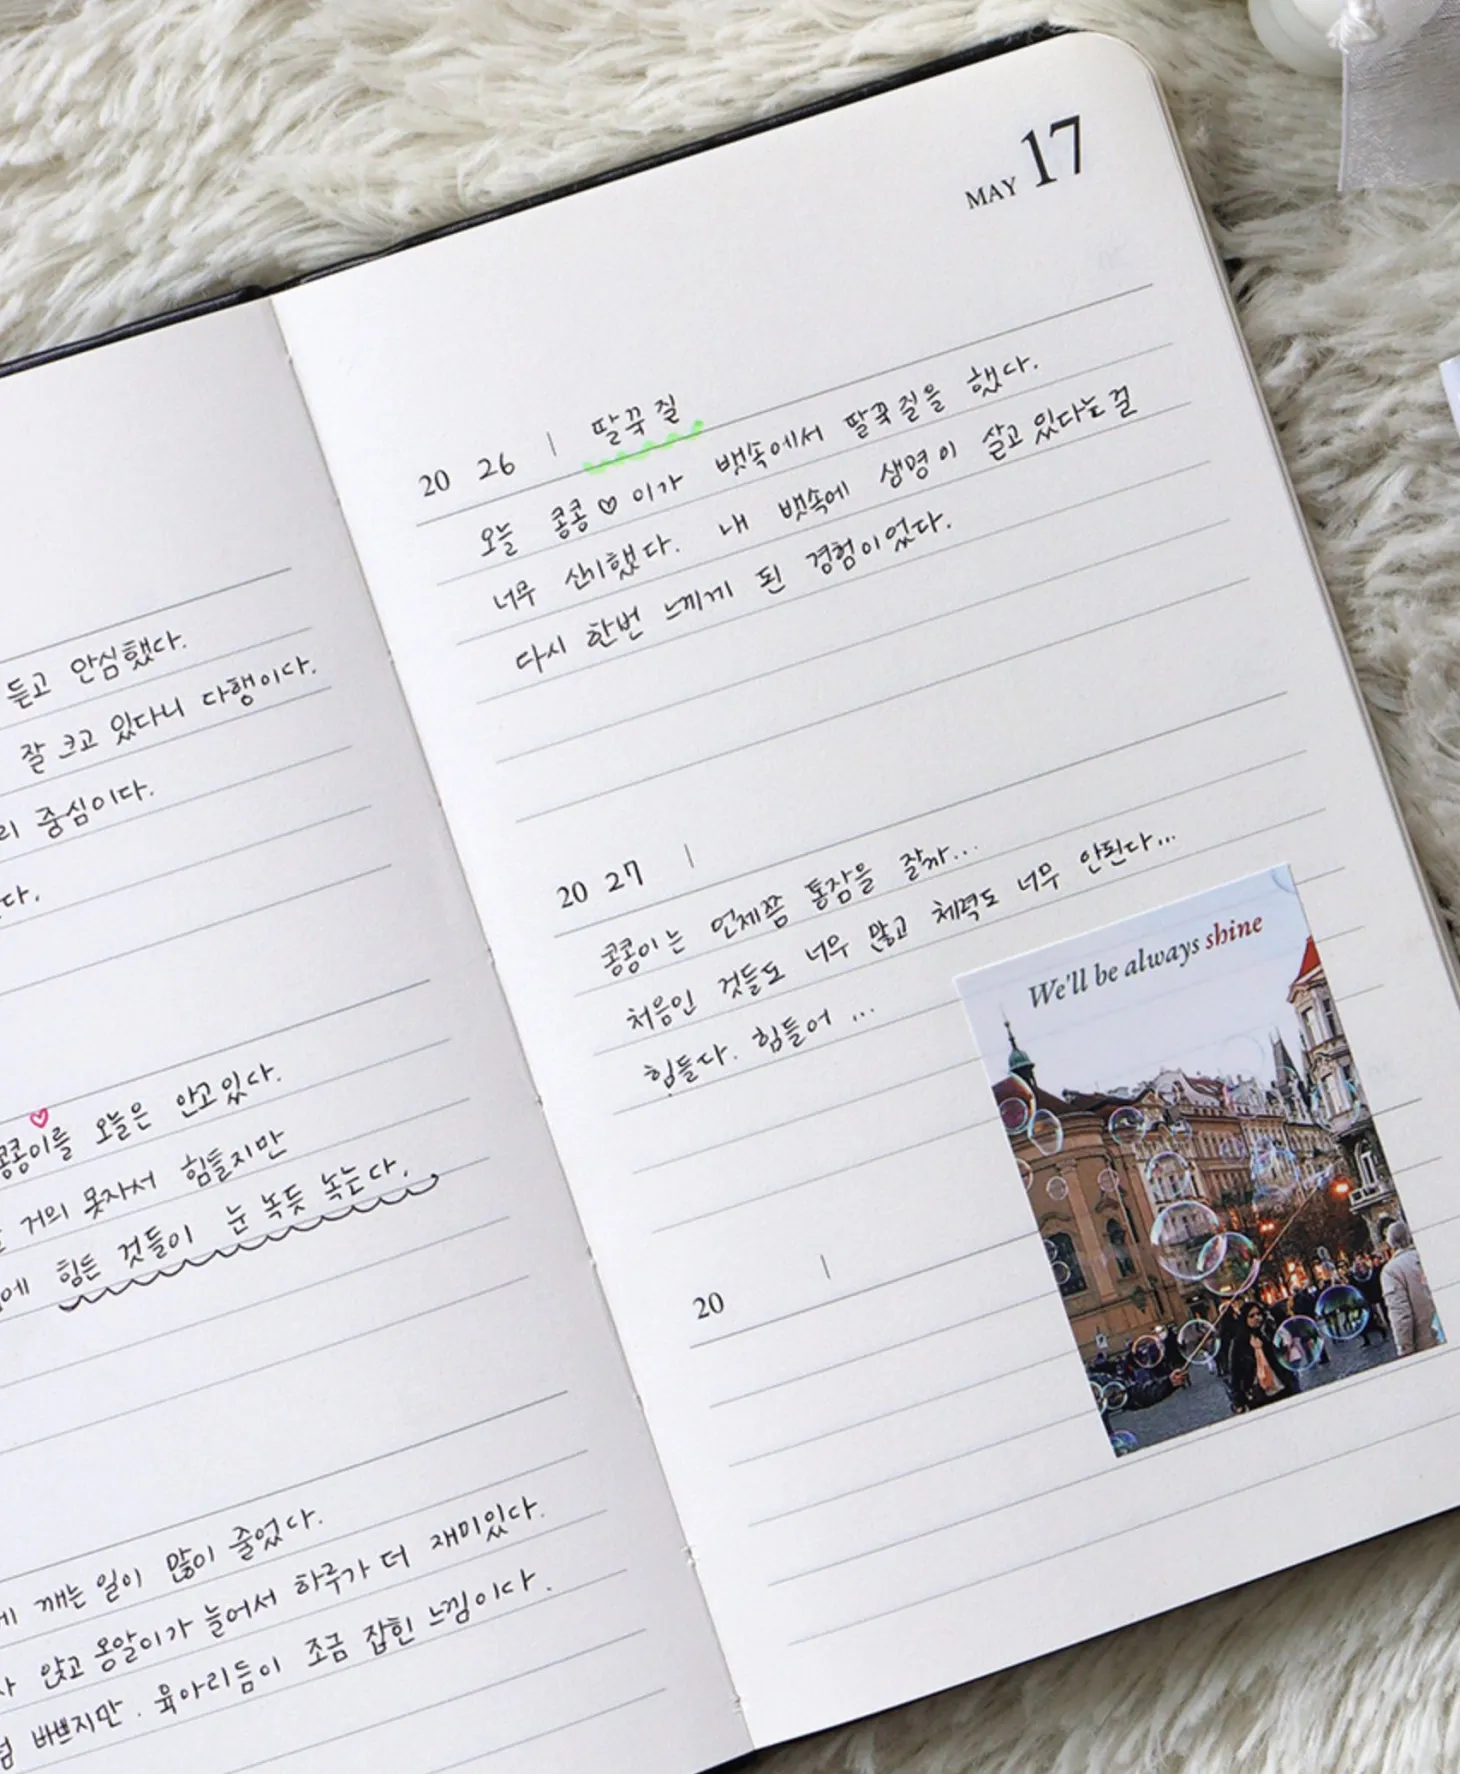 듣고 안심했다.
잘 크고 있다니 다행이다.
중심이다.
다.
콩콩이를 오늘은 안고있다.
거의 못자서 힘들지만
에 힘든 것들이 눈 녹듯 녹는다.
깨는 일이 많이 줄었다.
앉고 옹알이가 늘어서 하루가 더 재미있다.
바쁘지만. 육아리듬이 조금 잡힌 느낌이다.
MAY 17
20 26 | 딸꾹질
오늘 콩콩♡이가 뱃속에서 딸꾹질을 했다.
너무 신기했다. 내 뱃속에 생명이 살고있다는걸
다시 한번 느끼게 된 경험이었다.
20 27 |
콩콩이는 언제쯤 통잠을 잘까...
처음인 것들도 너무 많고 체력도 너무 안된다...
힘들다. 힘들어 ...
We'll be always shine
20 |